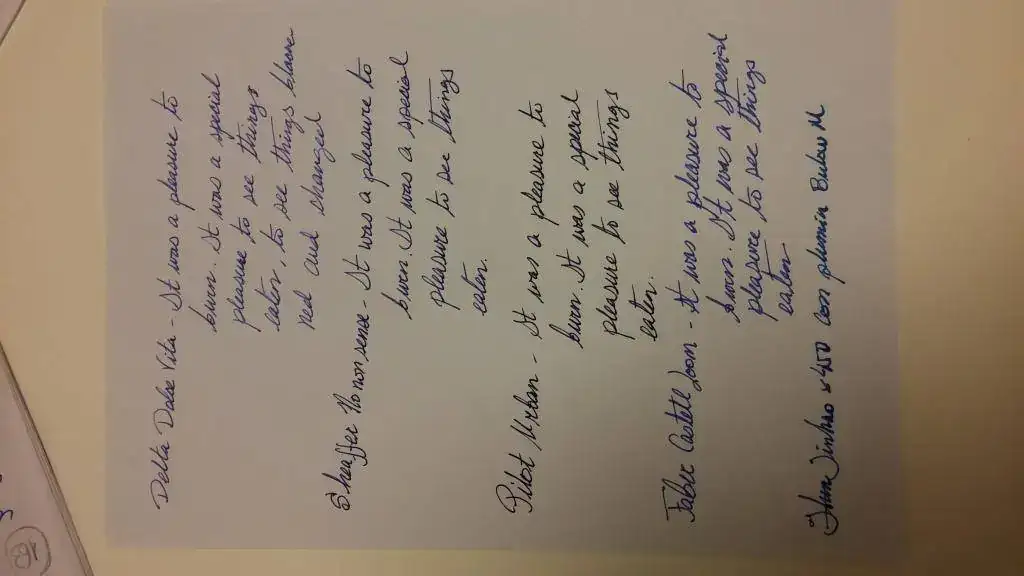 Delta Dolce Vita - It was a pleasure to
burn. It was a special
pleasure to see things
eaten, to see things blacke
ned and changed
Sheaffer No nonsense - It was a pleasure to
burn. It was a special
pleasure to see things
eaten.
Pilot Urban - It was a pleasure to
burn. It was a special
pleasure to see things
eaten.
Faber Castell Loom - It was a pleasure to
burn. It was a special
pleasure to see things
eaten
Jinhao x450 con plumin M